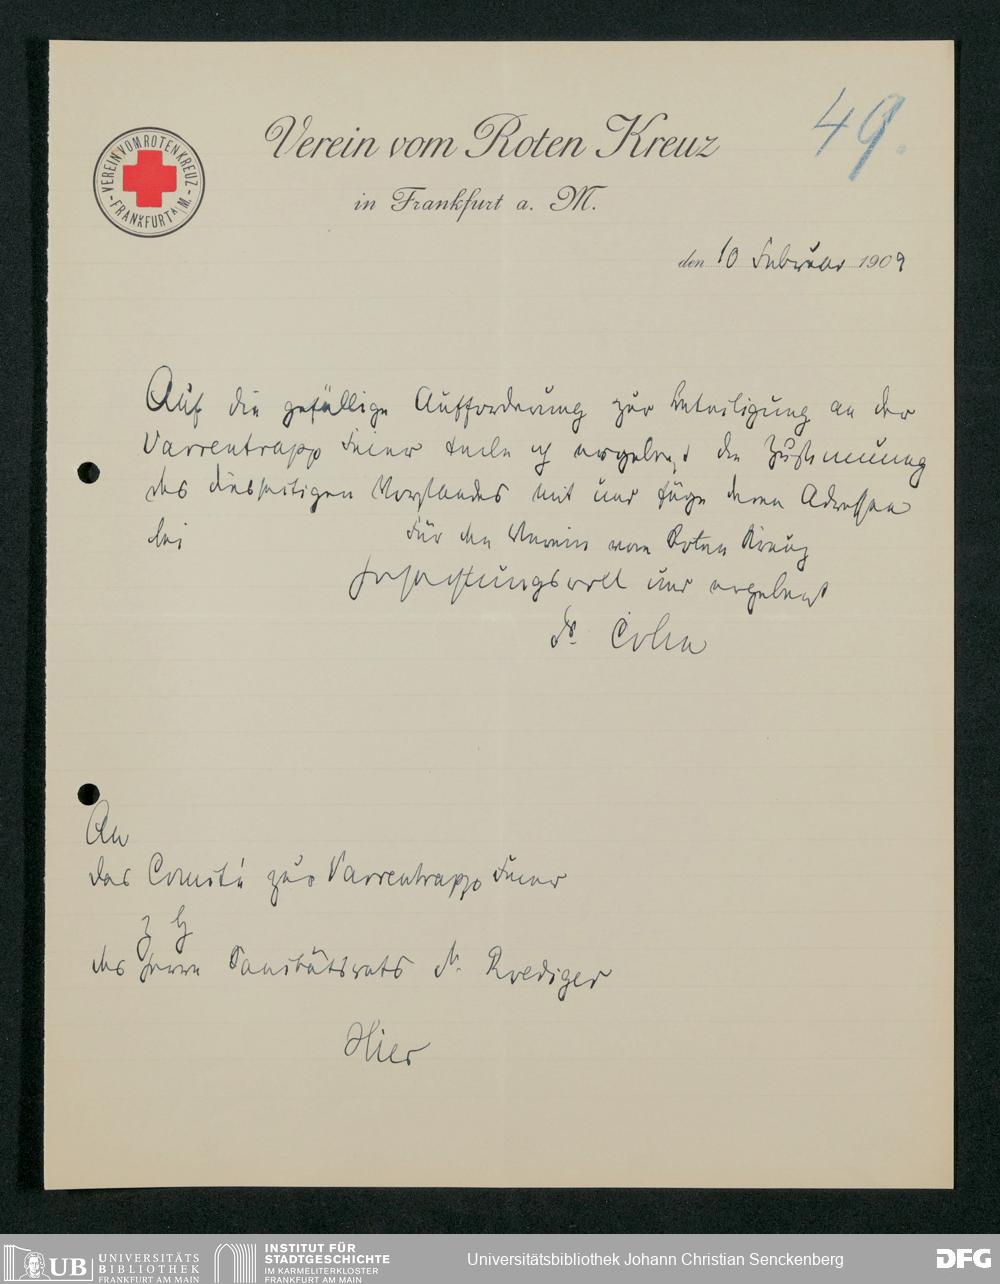 49.
VEREIN VOM ROTEN KREUZ
- FRANKFURT A/M. -
Verein vom Roten Kreuz
in Frankfurt a. M.
den 10 Februar 1909
Auf die gefällige Aufforderung zur Beteiligung an der
Varrentrapp Feier teile ich ergebenst die Zustimmung
des diesseitigen Vorstandes mit und füge deren Adressen
bei
Für den Verein vom Roten Kreuz
Hochachtungsvoll und ergebenst
Dr. Cohn
An
das Comité zur Varrentrapp Feier
z H
des Herrn Sanitätsrats Dr. Roediger
Hier
UB UNIVERSITÄTS
BIBLIOTHEK
FRANKFURT AM MAIN
INSTITUT FÜR
STADTGESCHICHTE
IM KARMELITERKLOSTER
FRANKFURT AM MAIN
Universitätsbibliothek Johann Christian Senckenberg
DFG